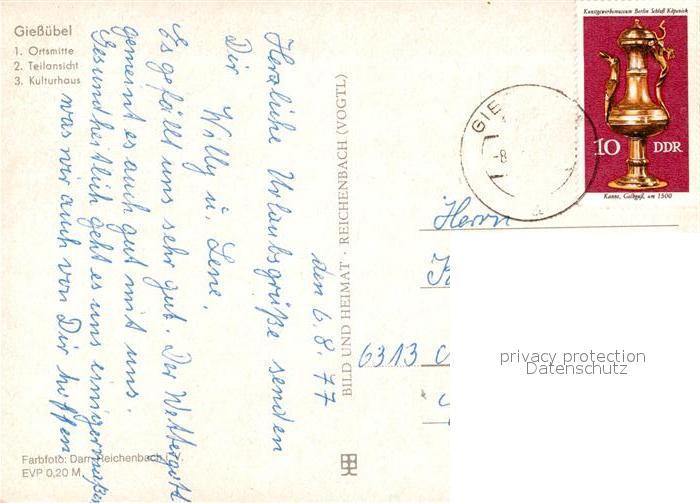 Gießübel
1. Ortsmitte
2. Teilansicht
3. Kulturhaus
den 6.8.77
Herzliche Urlaubsgrüße senden
Dir Willy u. Lene.
Es gefällt uns sehr gut. Der Wettergott
gemeint es auch gut mit uns.
Gesundheitlich geht es uns einigermaßen
was wir auch von Dir hoffen
BILD UND HEIMAT · REICHENBACH (VOGTL)
Farbfoto: Darr, Reichenbach
EVP 0,20 M
Kunstgewerbemuseum Berlin Schloß Köpenick
10 DDR
Kanne, Gelbguß, um 1500
GIE
-8
Herrn
6313
privacy protection
Datenschutz